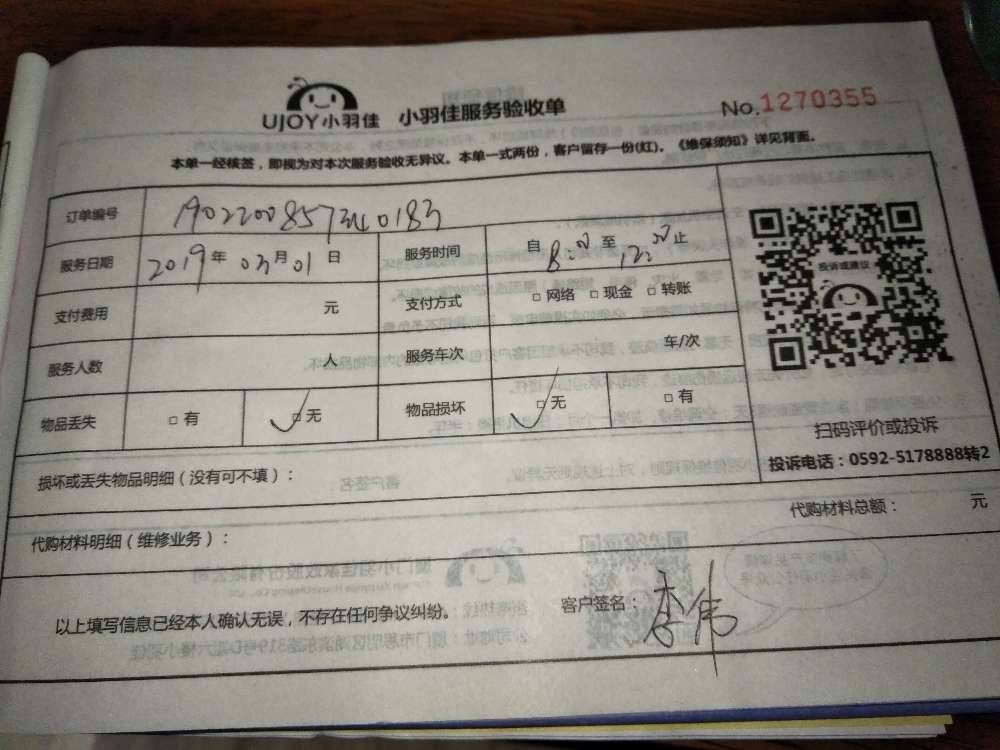 UJOY小羽佳 小羽佳服务验收单 No.1270355
本单一经核签，即视为对本次服务验收无异议。本单一式两份，客户留存一份(红)。《维保须知》详见背面。
订单编号 1902200857340183
服务日期 2019年03月01日 服务时间 自8:00至12:00止
支付费用 元 支付方式 □网络 □现金 □转账
服务人数 人 服务车次 车/次
物品丢失 □有 □无 物品损坏 □无 □有
投诉或建议
扫码评价或投诉
投诉电话：0592-5178888转2
损坏或丢失物品明细（没有可不填）：
代购材料明细（维修业务）： 代购材料总额： 元
以上填写信息已经本人确认无误，不存在任何争议纠纷。 客户签名：李伟